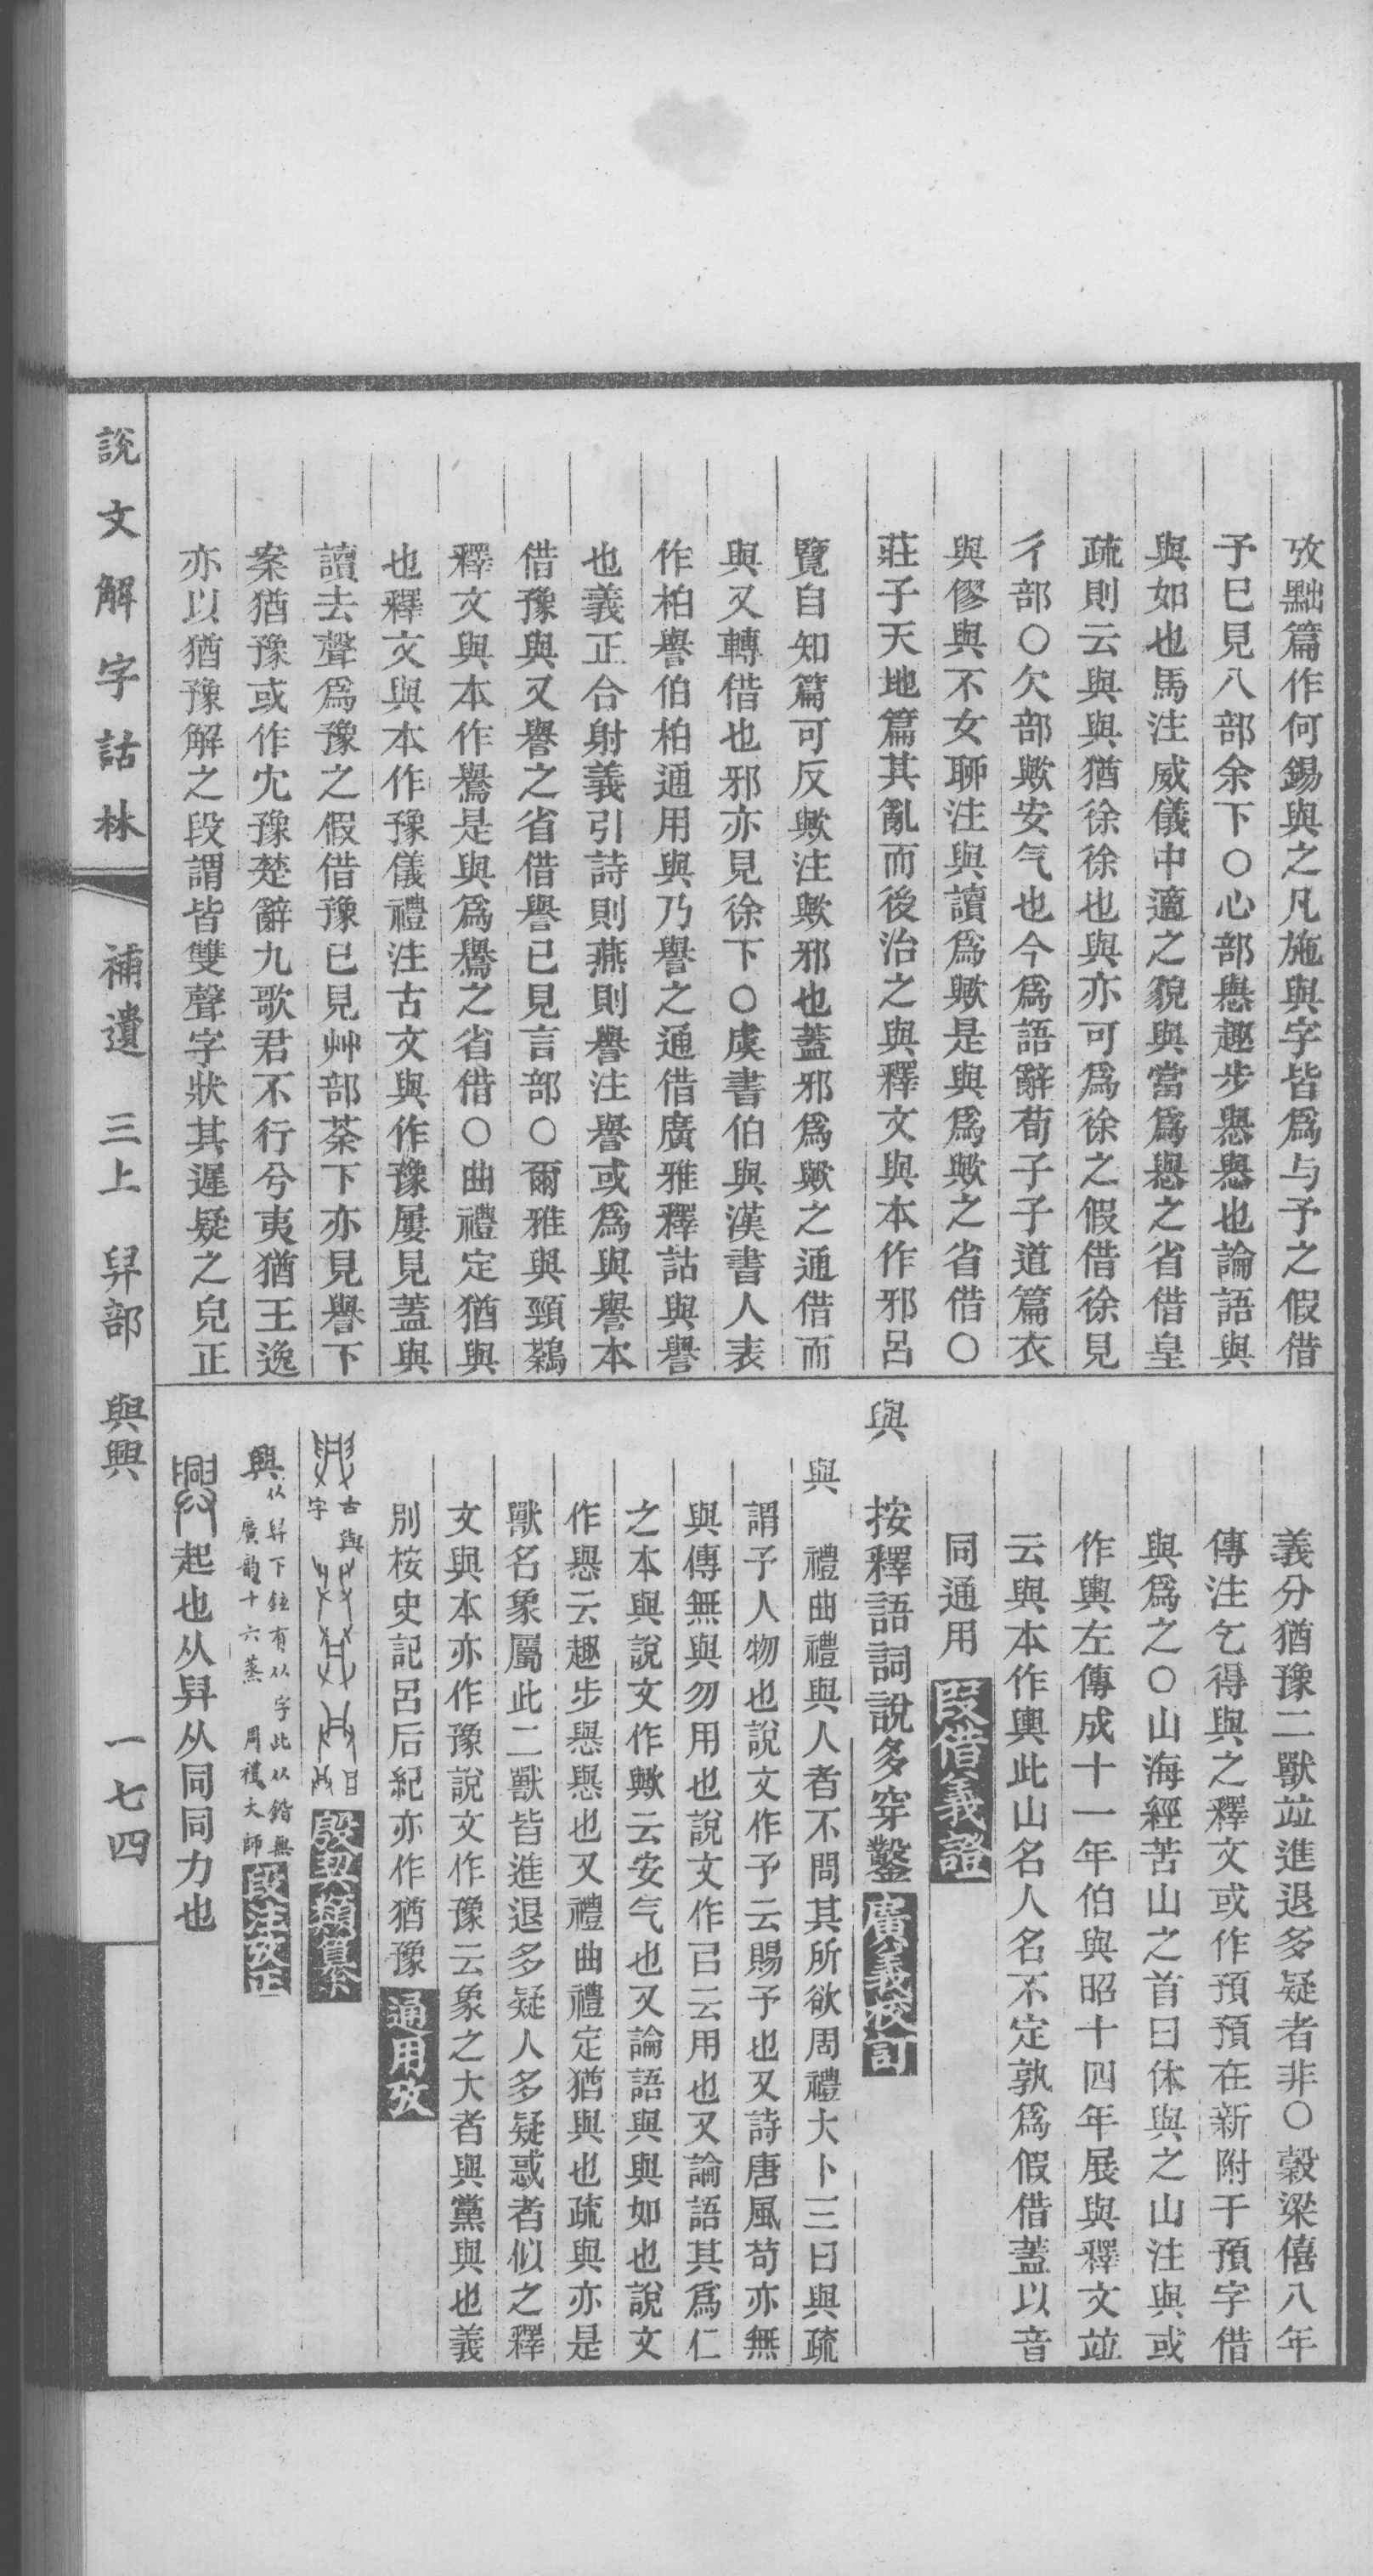 攷黜篇作何錫與之凡施與字皆爲与予之假借
予巳見八部余下〇心部懇趣步懇懇也論語與
與如也馬注威儀中適之貌與當爲懇之省借皇
疏則云與與猶徐徐也與亦可爲徐之假借徐見
彳部〇欠部歟安气也今爲語辭荀子子道篇衣
與僇與不女聊注與讀爲歟是與爲歟之省借〇
莊子天地篇其亂而後治之與釋文與本作邪呂
覽自知篇可反歟注歟邪也蓋邪爲歟之通借而
與又轉借也邪亦見徐下〇虞書伯與漢書人表
作柏譽伯柏通用與乃譽之通借廣雅釋詁與譽
也義正合射義引詩則燕則譽注譽或爲與譽本
借豫與又譽之省借譽已見言部〇爾雅與頸鵵
釋文與本作鸒是與爲鸒之省借〇曲禮定猶與
也釋文與本作豫儀禮注古文與作豫屢見蓋與
讀去聲爲豫之假借豫已見艸部荼下亦見譽下
案猶豫或作冘豫楚辭九歌君不行兮夷猶王逸
亦以猶豫解之段謂皆雙聲字狀其遲疑之皃正
義分猶豫二獸竝進退多疑者非〇穀梁僖八年
傳注乞得與之釋文或作預預在新附干預字借
與爲之〇山海經苦山之首曰休與之山注與或
作輿左傳成十一年伯與昭十四年展與釋文竝
云與本作輿此山名人名不定孰爲假借蓋以音
同通用 叚借義證
與 按釋語詞說多穿鑿 廣義校訂
與 禮曲禮與人者不問其所欲周禮大卜三曰與疏
謂予人物也說文作予云賜予也又詩唐風苟亦無
與傳無與勿用也說文作㠯云用也又論語其爲仁
之本與說文作歟云安气也又論語與與如也說文
作懇云趣步懇懇也又禮曲禮定猶與也疏與亦是
獸名象屬此二獸皆進退多疑人多疑惑者似之釋
文與本亦作豫說文作豫云象之大者與黨與也義
別桉史記呂后紀亦作猶豫 通用攷
古與字 殷契類纂
興 从舁下鉉有从字此从鍇無廣韵十六蒸周禮大師 段注攷正
起也从舁从同同力也
說文解字詁林 補遺 三上 舁部 與興 一七四